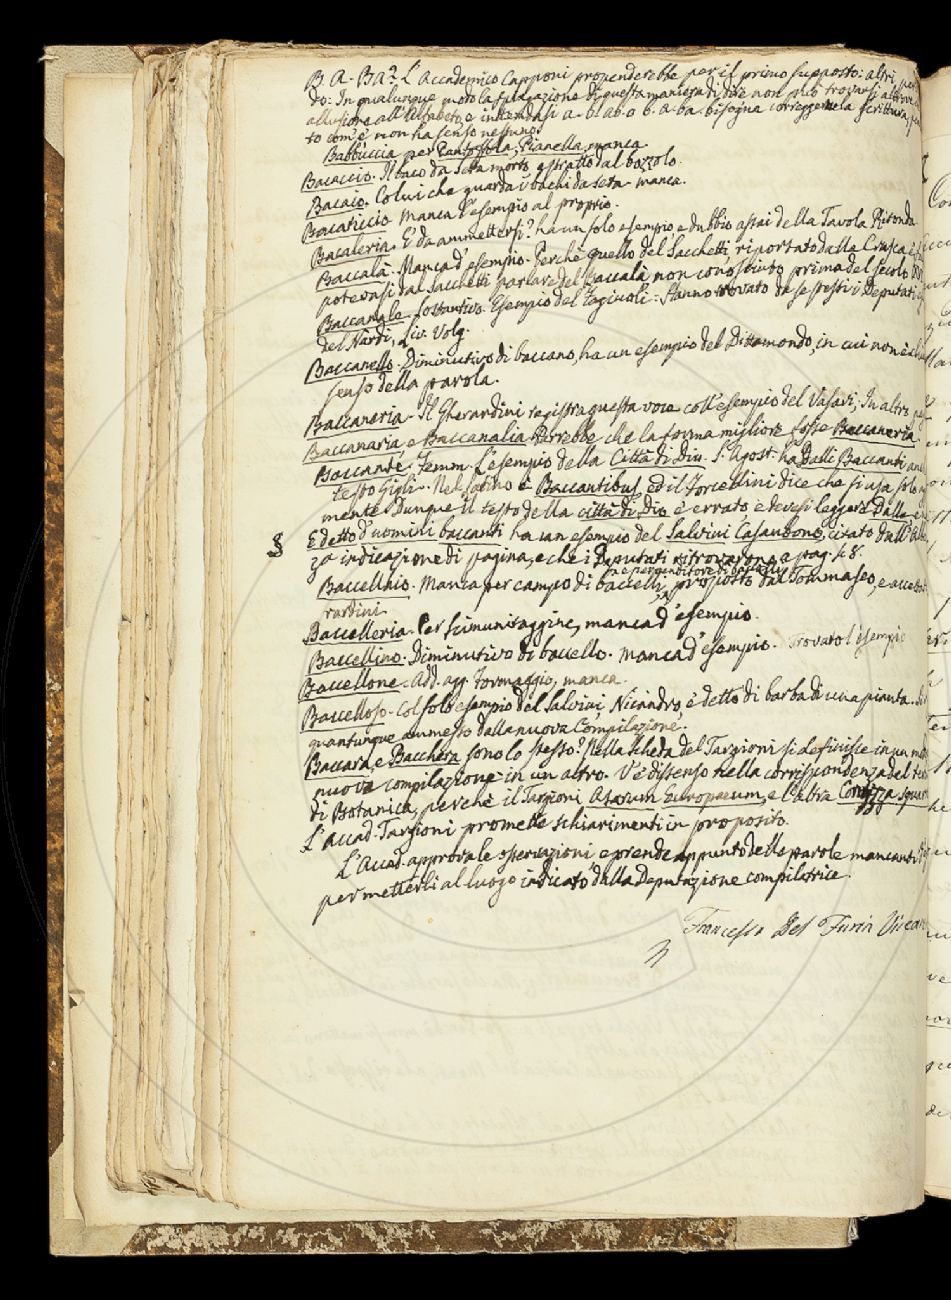 B. A. - BA? L'Accademico Capponi propenderebbe per il primo supposto: altri pel
do: In qualunque modo la spiegazione di questa maniera di dire non può trovarsi altrove
allusione all'Alfabeto, e intendasi a-b. ab-o b-a-ba. bisogna correggere la scrittura, per
to com'è non ha senso nessuno.
Babbuccia per Pantofola, Pianella, manca.
Bacaccio. Il baco da seta morto, estratto dal bozzolo.
Bacaio. Colui che guarda i bachi da seta - manca.
Bacaticcio Manca l'esempio al proprio.
Bacaleria. È da ammettersi? ha un solo esempio, e dubbio assai della Tavola Ritonda.
Baccalà. Manca d'esempio. Perchè quello del Sacchetti, riportato dalla Crusca è
potevasi dal Sacchetti parlare del Baccalà non conosciuto prima del secolo
Baccanale. sostantivo. Esempio del Fagiuoli: Hanno trovato da se stessi i Deputati
del Nardi, Liv. Volg.
Baccanello. Diminutivo di baccano, ha un esempio del Dittamondo, in cui non è
senso della parola.
Baccaneria. Il Gherardini registra questa voce coll'esempio del Vasari; In altri
Baccanaria, e Baccanalia. Parrebbe che la forma migliore fosse Baccaneria.
Baccante. Femm. L'esempio della Città di Dio. S. Agost. ha Dalli Baccanti
testo Gigli. Nel Latino è Bacchantibus, ed il Forcellini dice che si usa solo
mente. Dunque il testo della città di Dio è errato, e devesi leggere Dalle
§ E detto d'uomini baccanti ha un esempio del Salvini Casaubono, citato dall'
za indicazione di pagina, e che i Deputati ritrovarono a pag. 48.
e per venditore di baccelli
Baccellaio. Manca per campo di baccelli, proposto dal Tommaseo, e accettat
rardini.
Baccelleria. Per scimunitaggine, manca d'esempio.
Baccellino. Diminutivo di baccello. manca d'esempio. Trovato l'esempio
Baccellone. Add. agg. Formaggio, manca.
Baccelloso. Col solo esempio del Salvini, Nicandro, è detto di barba di una pianta.
quantunque ammesso dalla nuova Compilazione.
Baccara, e Bacchera sono lo stesso? Nella scheda del Targioni si definisce in un
nuova compilazione in un altro. V'è dissenso nella corrispondenza del
di Botanica, perchè il Targioni Asarum Europaeum, e l'altra Conizza
L'Accad. Targioni promette schiarimenti in proposito.
L'Accad. approva le osservazioni e prende appunto delle parole mancanti
per metterli al luogo indicato dalla Deputazione compilatrice.
Francesco Del Furia